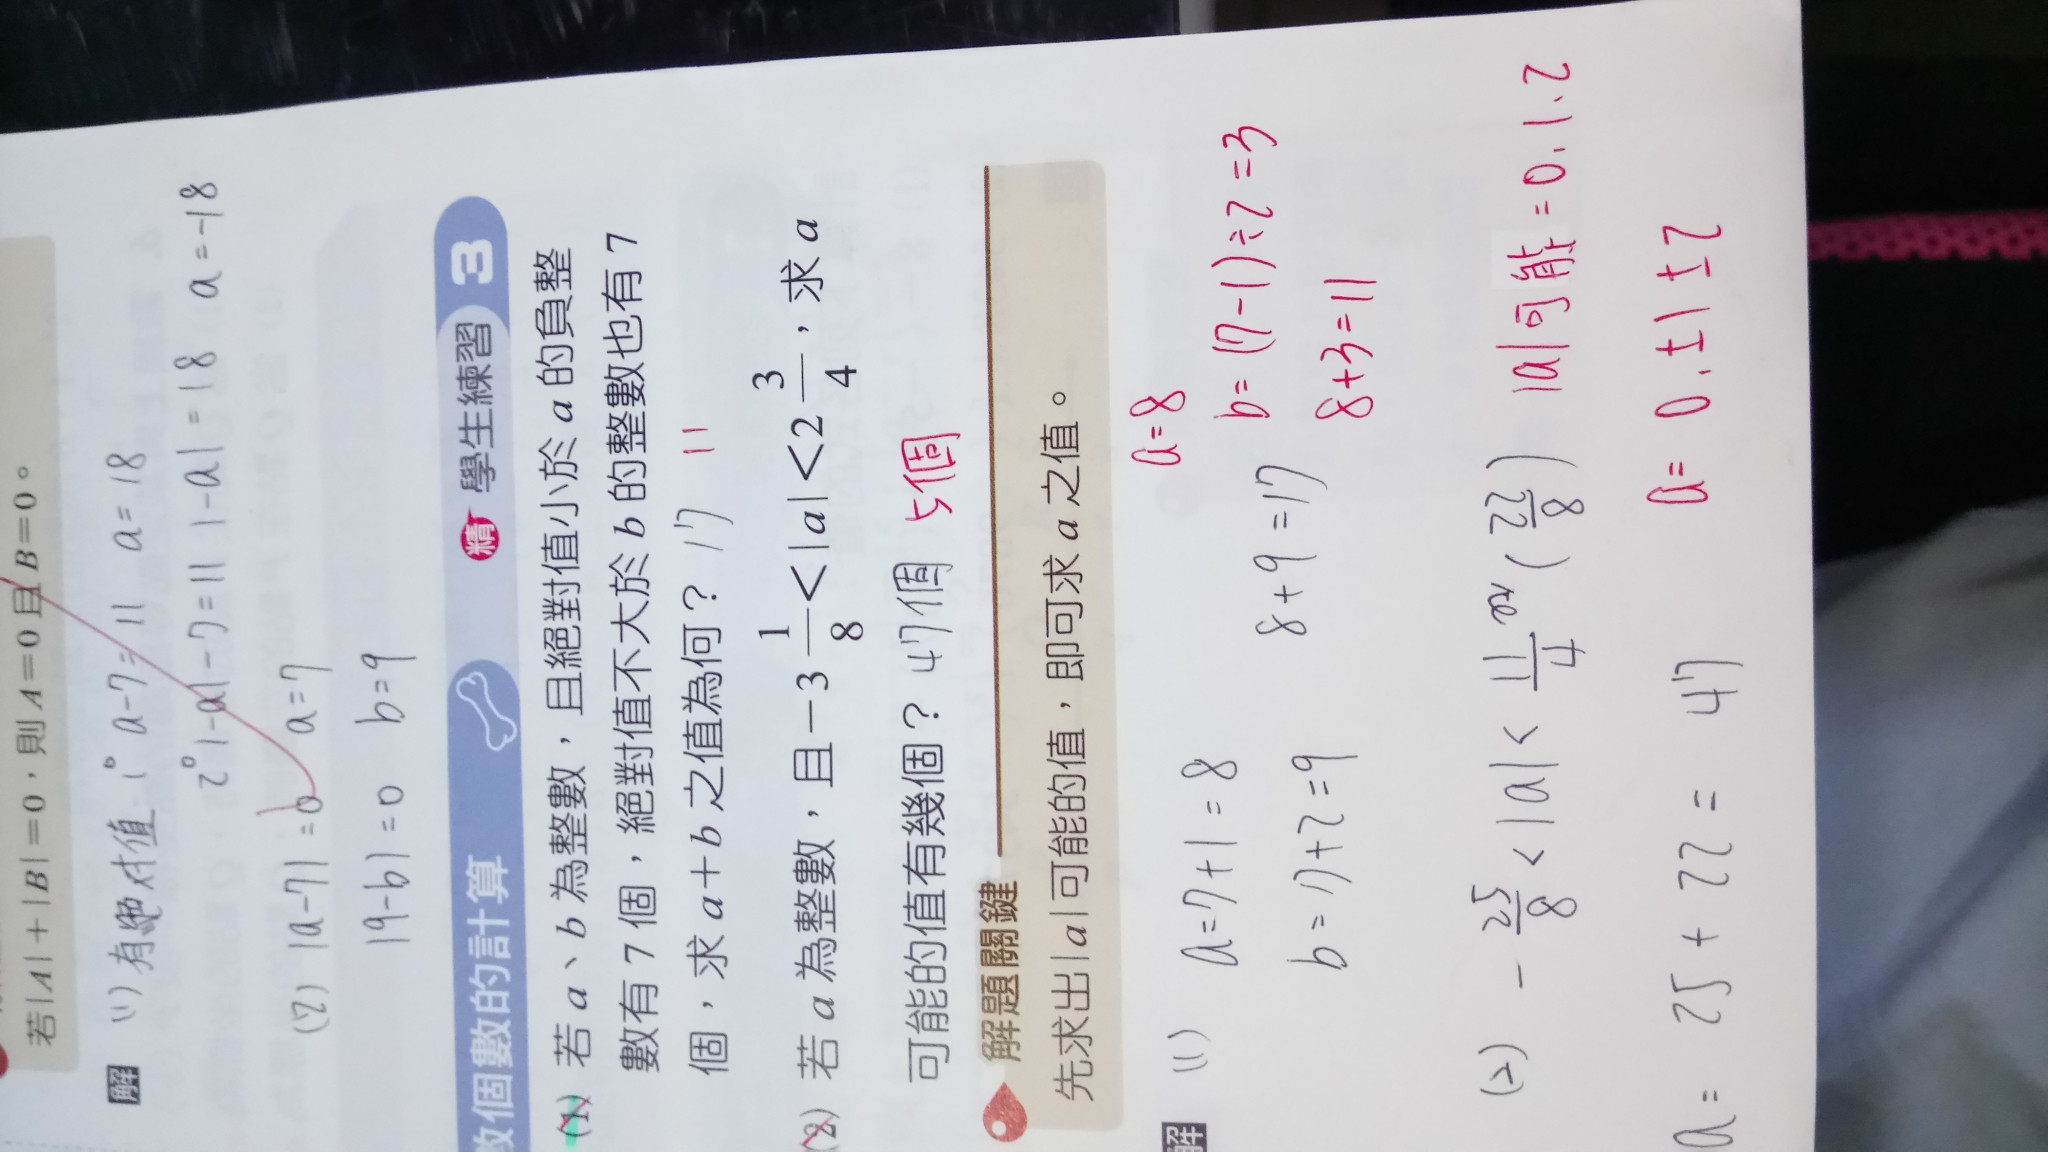 若|A|+|B|=0，則A=0且B=0。
解 (1) 有絕对值 1° a-7=11 a=18
2° |-a|-7=11 |-a|=18 a=-18
(2) |a-7|=0 a=7
|9-b|=0 b=9
數個數的計算 精 學生練習 3
(1) 若a、b為整數，且絕對值小於a的負整
數有7個，絕對值不大於b的整數也有7
個，求a+b之值為何？ 17 11
(2) 若a為整數，且-3 1/8 < |a| < 2 3/4，求a
可能的值有幾個？ 47個 5個
解題關鍵
先求出|a|可能的值，即可求a之值。
a=8
解 (1) a=7+1=8
b=(7-1)÷2=3
b=7+2=9 8+9=17
8+3=11
(2) -25/8 < |a| < 11/4 (22/8) |a|可能=0.1.2
a= 0.±1 ±2
a= 25+22= 47